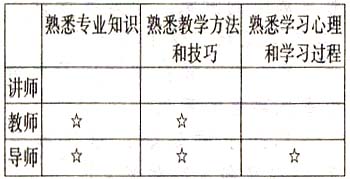 熟悉专业知识 熟悉教学方法和技巧 熟悉学习心理和学习过程
讲师
教师 ☆ ☆
导师 ☆ ☆ ☆